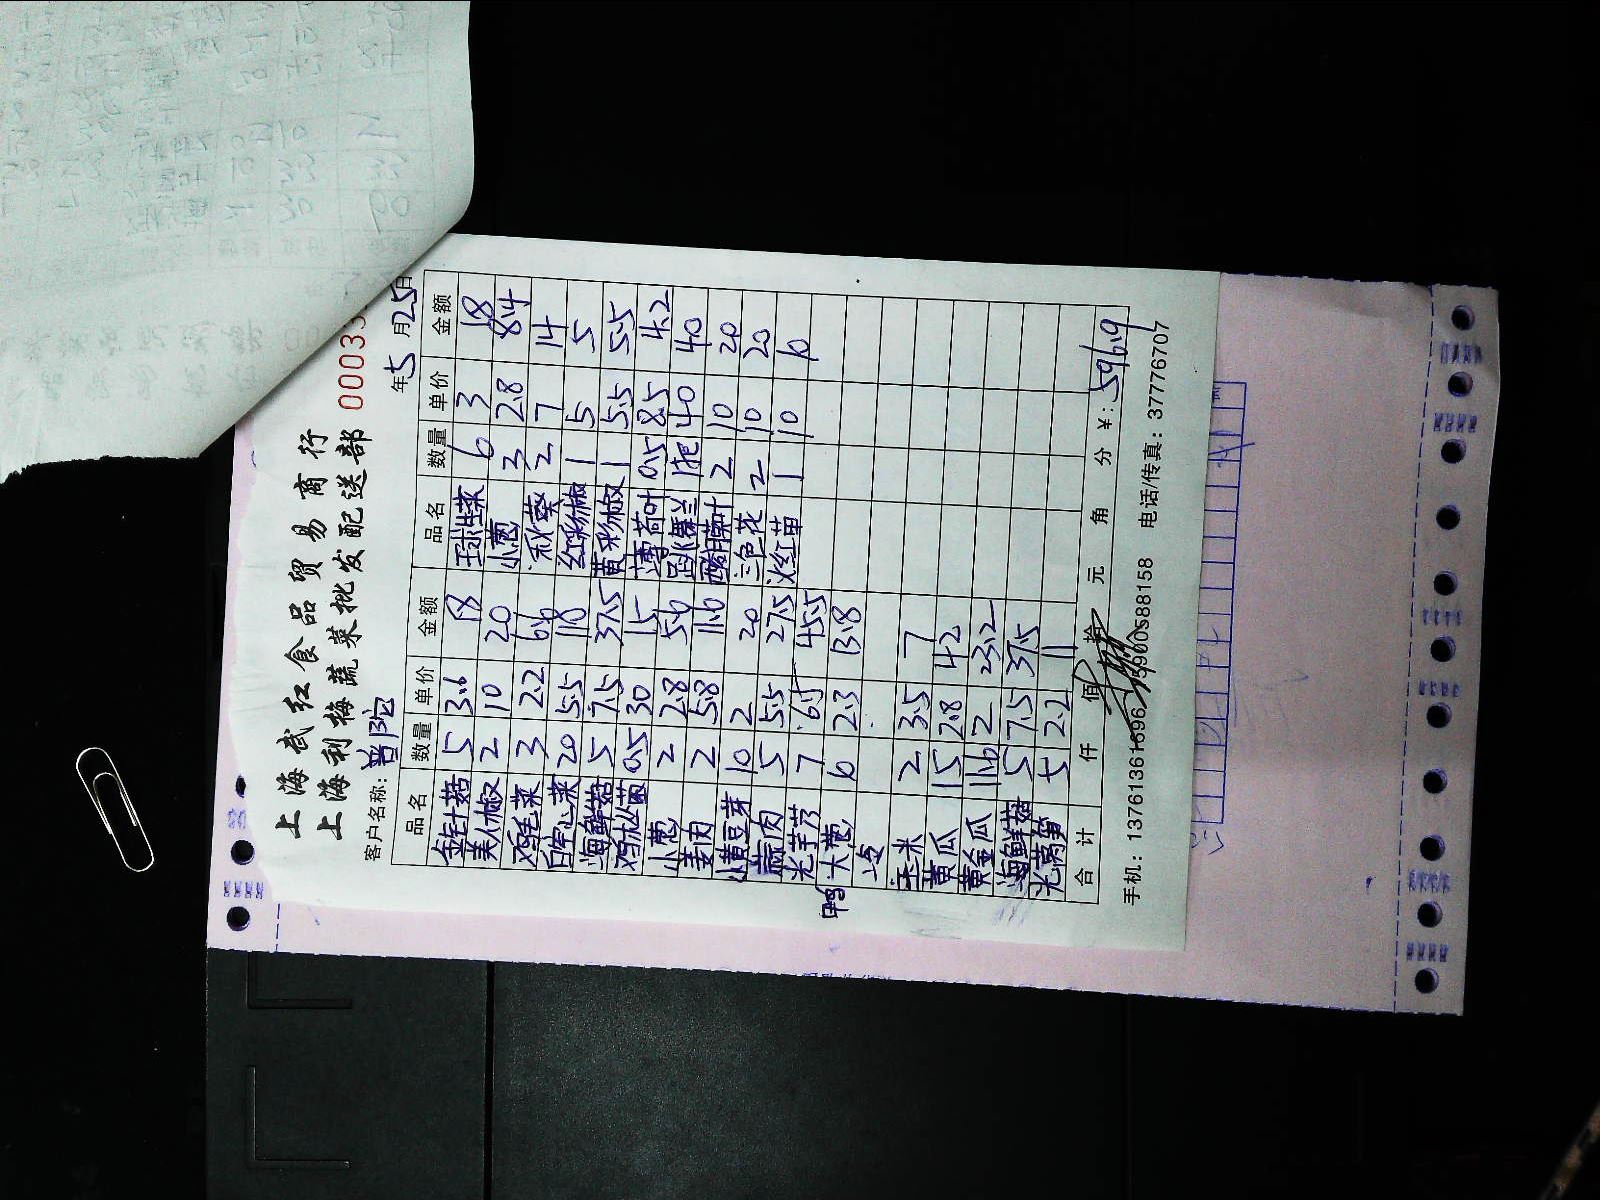 上海武红食品贸易商行
上海利梅蔬菜批发配送部 00033
客户名称: 普陀 年5月25日
品名 数量 单价 金额 品名 数量 单价 金额
金针菇 5 3.6 18 球生菜 6 3 18
美人椒 2 10 20 小葱 3 2.8 8.4
鸡毛菜 3 2.2 6.6 秋葵 2 7 14
空心菜 20 5.5 110 红彩椒 1 5 5
海鲜菇 5 7.5 37.5 黄彩椒 1 5.5 5.5
鸡枞菌 0.5 30 15 薄荷叶 0.5 8.5 4.2
小葱 2 2.8 5.6 跳舞兰 1把 40 40
姜肉 2 5.8 11.6 醋草叶 2 10 20
小黄豆芽 10 2 20 三色花 2 10 20
蒜肉 5 5.5 27.5 火红苗 1 10 10
光芋艿 7 6.5 45.5
大葱 6 2.3 13.8
玉米 2 3.5 7
黄瓜 15 2.8 42
黄金瓜 11.6 2 23.2
海鲜菇 5 7.5 37.5
光莴笋 5 2.2 11
合计 仟 佰 拾 元 角 分 ¥: 596.9
手机: 13761361696 15900588158 电话/传真: 37776707